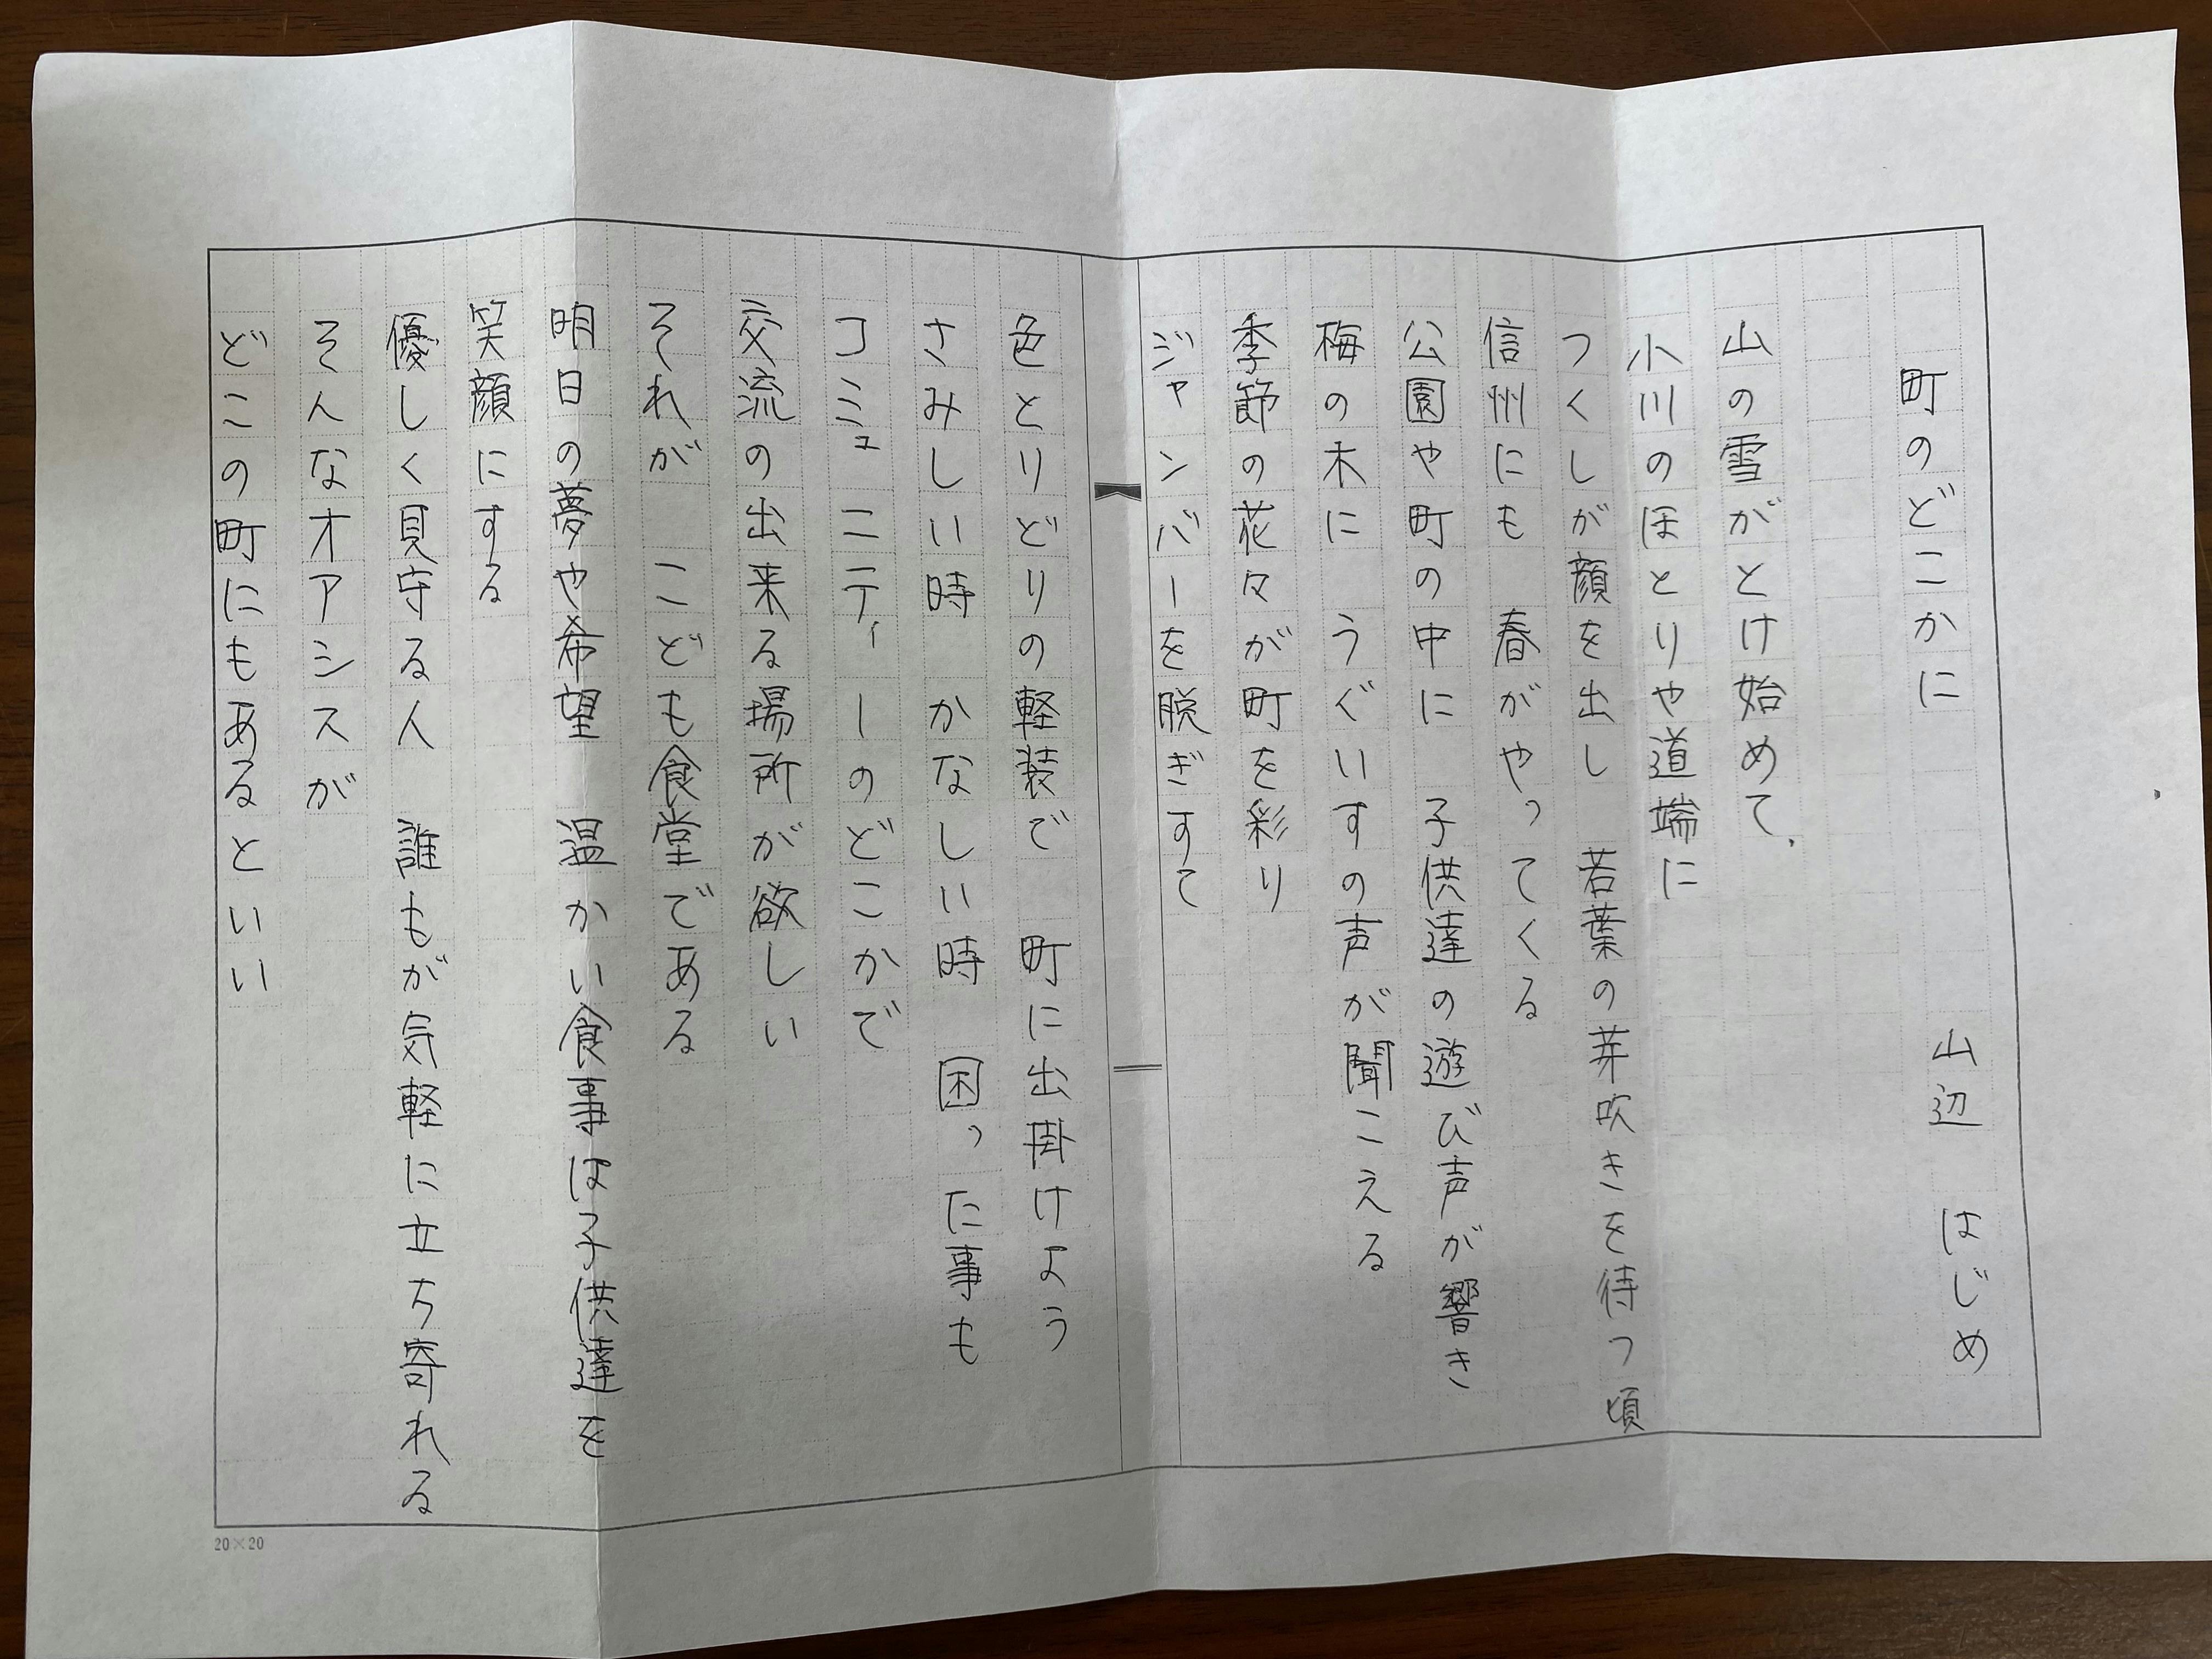 町のどこかに　　　　　山辺　はじめ
山の雪がとけ始めて、
小川のほとりや道端に
つくしが顔を出し　若葉の芽吹きを待つ頃
信州にも　春がやってくる
公園や町の中に　子供達の遊び声が響き
梅の木に　うぐいすの声が聞こえる
季節の花々が町を彩り
ジャンバーを脱ぎすて
色とりどりの軽装で　町に出掛けよう
さみしい時　かなしい時　困った事も
コミュニティーのどこかで
交流の出来る場所が欲しい
それが　こども食堂である
明日の夢や希望　温かい食事は子供達を
笑顔にする
優しく見守る人　誰もが気軽に立ち寄れる
そんなオアシスが
どこの町にもあるといい
20×20